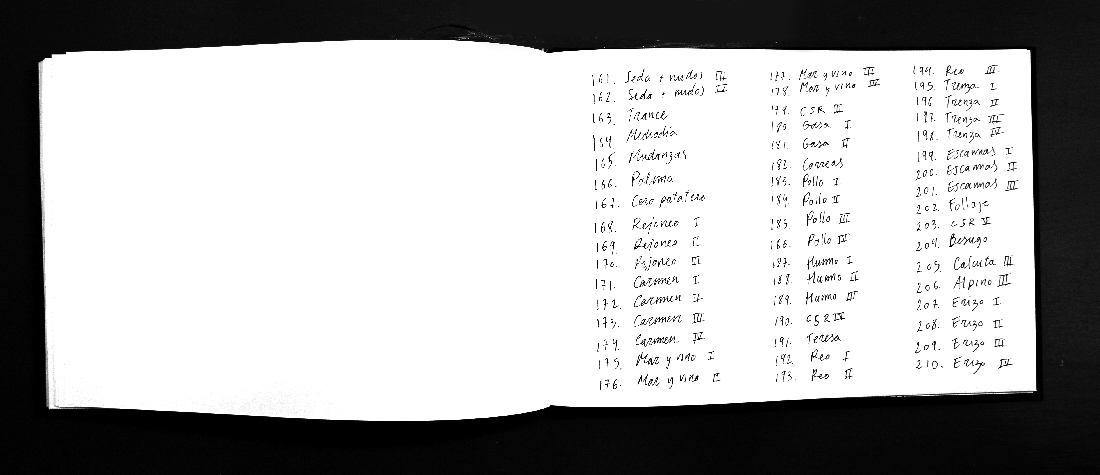 161. Seda + nudos II
162. Seda + nudos II
163. Trance
164. Mediodia
165. Mudanzas
166. Paloma
167. Coro patatero
168. Rejoneo I
169. Rejoneo II
170. Rejoneo III
171. Carmen I
172. Carmen II
173. Carmen III
174. Carmen IV
175. Mar y vino I
176. Mar y vino II
177. Mar y vino III
178. Mar y vino IV
179. CSR II
180. Gasa I
181. Gasa II
182. Correas
183. Pollo I
184. Pollo II
185. Pollo III
186. Pollo IV
187. Humo I
188. Humo II
189. Humo III
190. CSR IV
191. Teresa
192. Reo I
193. Reo II
194. Reo III
195. Trenza I
196. Trenza II
197. Trenza III
198. Trenza IV
199. Escamas I
200. Escamas II
201. Escamas III
202. Follaje
203. CSR V
204. Besugo
205. Calcuta III
206. Alpino III
207. Erizo I
208. Erizo II
209. Erizo III
210. Erizo IV